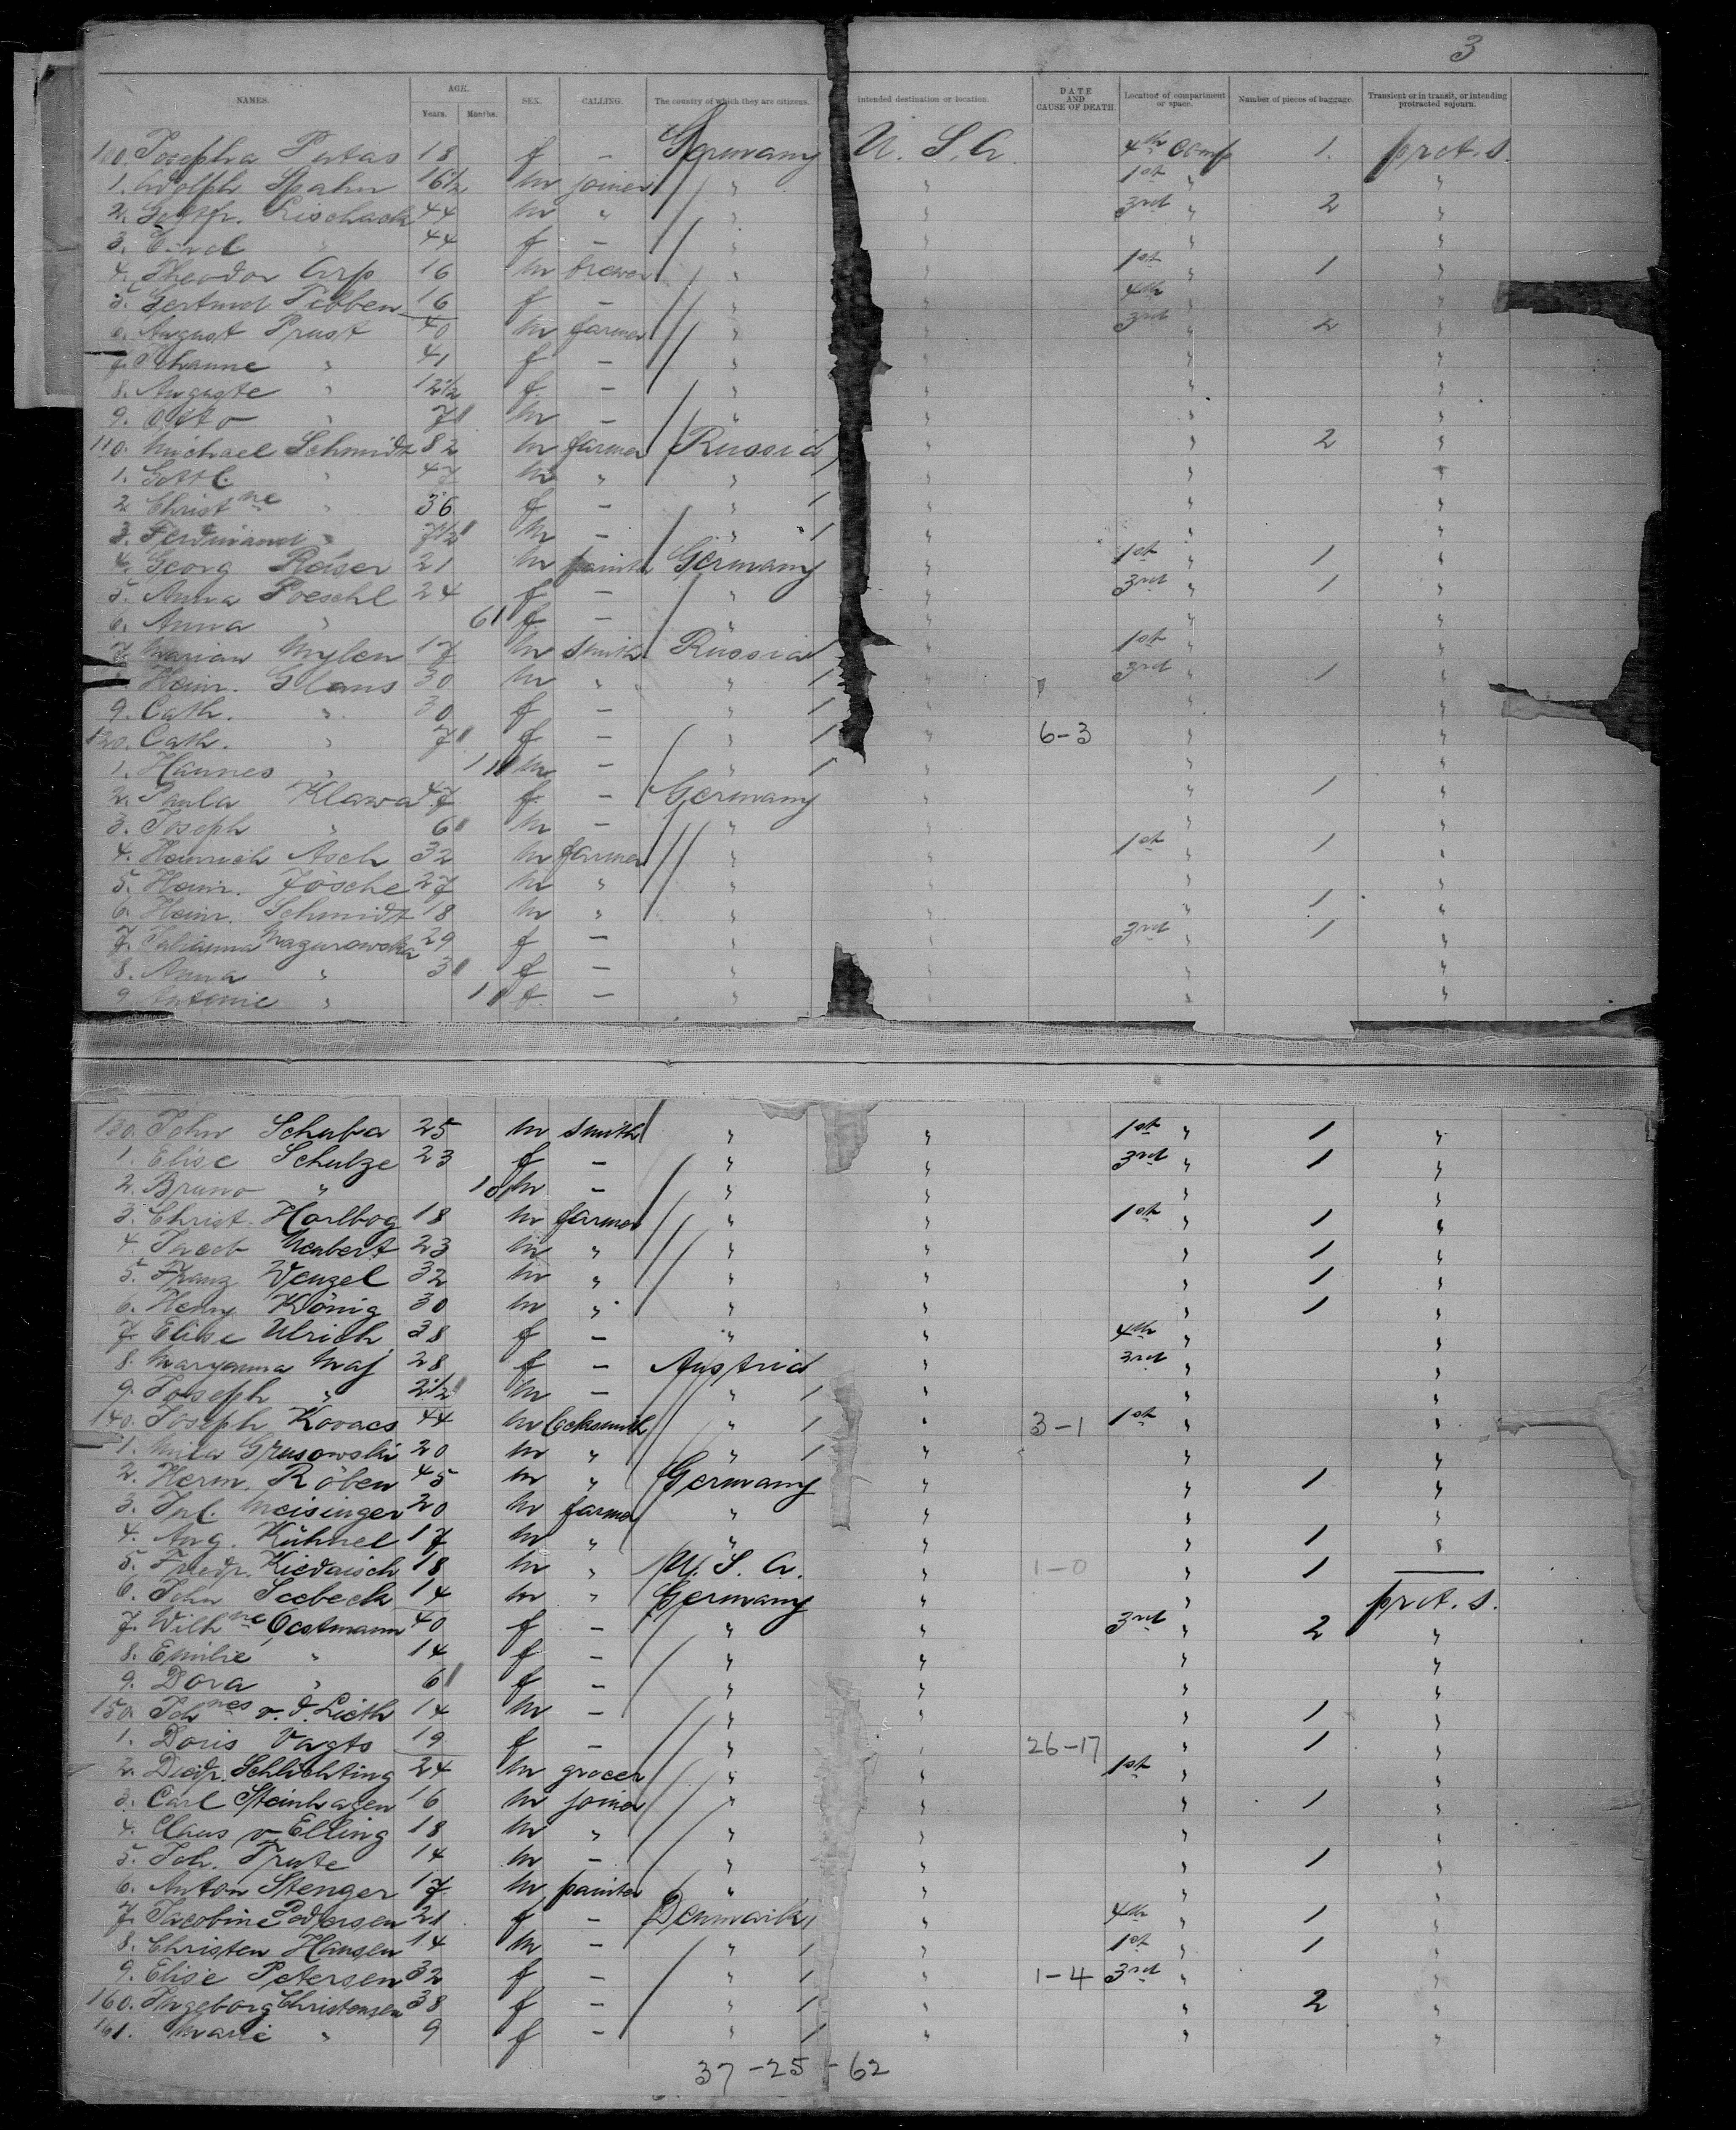 3
NAMES. AGE. Years. Months. SEX. CALLING. The country of which they are citizens. Intended destination or location. DATE AND CAUSE OF DEATH. Location of compartment or space. Number of pieces of baggage. Transient or in transit, or intending protracted sojourn.
100. Josepha Putas 18 f — Germany U. S. A. 4th Comp 1. prct. s.
1. Adolph Spahn 16 1/2 m joiner " " 1st " "
2. Gottfr. Lischack 44 m " " " 3rd " 2 "
3. " 44 f — " " " "
4. Theodor Arp 16 m brewer " " 1st " 1 "
5. Gertrud Tibben 16 f — " " 4th " "
6. August Prust 40 m farmer " " 3rd " 2 "
7. Johanne " 41 f — " " " "
8. Auguste " 12 1/2 f. — " " " "
9. Otto " 7 m — " " " "
110. Michael Schmidt 82 m farmer Russia " " 2 "
1. Gottl. " 47 m " " " " "
2 Christne " 36 f — " " " "
3. Ferdinand " 7 1/2 m — " " " "
4. Georg Reiser 21 m painter Germany " 1st " 1 "
5. Anna Poeschl 24 f — " " 3rd " 1 "
6. Anna " 6 f — " " " "
7. Marian Mylen 17 m smith Russia " 1st " "
Heinr. Glans 30 m " " " 3rd " 1 "
9. Cath. " 30 f — " " " "
120. Cath. " 7 f — " " 6-3 " "
1. Hannes " 11 m — " " " "
2. Paula Klawa 47 f. — Germany " " 1 "
3. Joseph " 6 m — " " " "
4. Heinrich Asch 32 m farmer " " 1st " 1 "
5. Heinr. Jösche 27 m " " " " "
6. Heinr. Schmidt 18 m " " " " 1 "
7. Julianna Mazurowska 29 f — " " 3rd " 1 "
8. Anna " 3 f — " " " "
9. Antonie " 1 f. — " " " "
130. John Schuba 25 m smith " " 1st " 1 "
1. Elise Schulze 23 f — " " 3rd " 1 "
2. Bruno " 10 m — " " " "
3. Christ. Harlbog 18 m farmer " " 1st " 1 "
4. Jacob Neubert 23 m " " " " 1 "
5. Franz Wenzel 32 m " " " " 1 "
6. Henry König 30 m " " " " 1 "
7. Elise Ulrich 38 f — " " 4th " "
8. Maryanna Maj 28 f — Austria " 3rd " "
9. Joseph " 2 1/2 m — " " " "
140. Joseph Kovacs 44 m locksmith " " 3-1 1st " "
1. Mila Grusowski 20 m " " " " "
2. Herm. Röben 45 m " Germany " " 1 "
3. Jul. Meisinger 20 m farmer " " " "
4. Aug. Kühnel 17 m " " " " 1 "
5. Friedr. Kiedaisch 18 m " U. S. A. " 1-0 " 1 —
6. John Seebeck 14 m " Germany " " prct. s.
7. Wilhne Oestmann 40 f — " " 3rd " 2 "
8. Emilie " 14 f — " " " "
9. Dora " 6 f — " " " "
150. Johnes v. d. Lieth 14 m — " " " 1 "
1. Doris Vagts 19 f — " " 26-17 " 1 "
2. Diedr. Schlichting 24 m grocer " " 1st " "
3. Carl Steinhagen 16 m joiner " " " 1 "
4. Claus v. Elling 18 m " " " " "
5. Joh. Trute 14 m — " " " 1 "
6. Anton Stenger 17 m painter " " " "
7. Jacobine Pedersen 21 f — Denmark " 4th " 1 "
8. Christen Hansen 14 m — " " 1st " 1 "
9. Elise Petersen 32 f — " " 1-4 3rd " "
160. Ingeborg Christensen 38 f — " " " 2 "
161. Marie " 9 f — " " " "
37-25-62